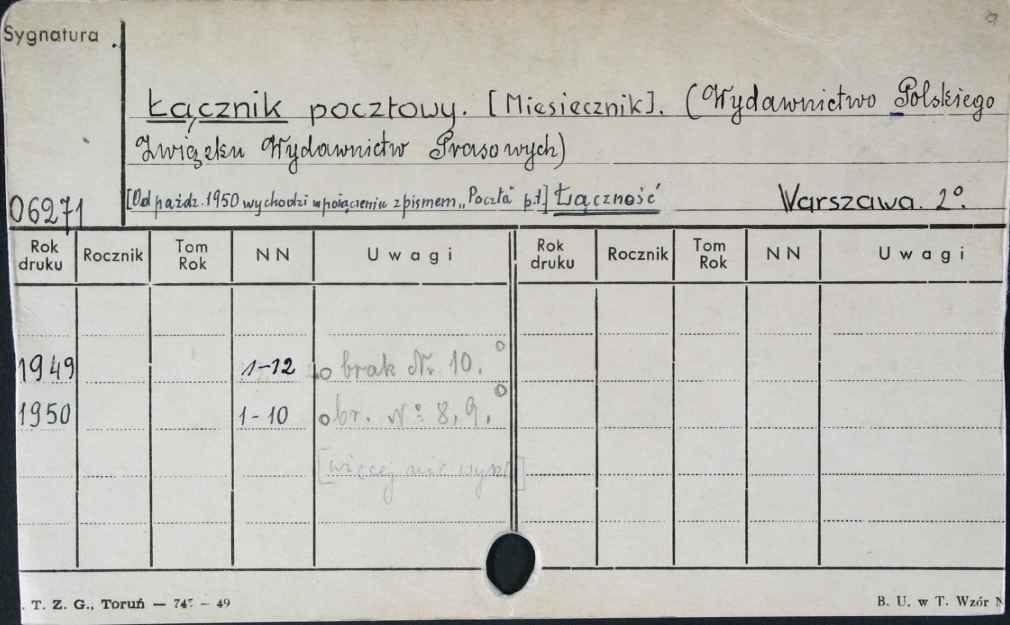 Sygnatura
Łącznik pocztowy. [Miesięcznik]. (Wydawnictwo Polskiego
Związku Wydawnictw Prasowych)
[Od paźdz. 1950 wychodzi w połączeniu z pismem „Poczta" p.t.] Łączność Warszawa. 2°.
06271
Rok druku Rocznik Tom Rok NN Uwagi Rok druku Rocznik Tom Rok NN Uwagi
1949 1-12 brak Nr. 10.
1950 1-10 br. Nº 8, 9.
[więcej nie
T. Z. G., Toruń — 747 — 49 B. U. w T. Wzór